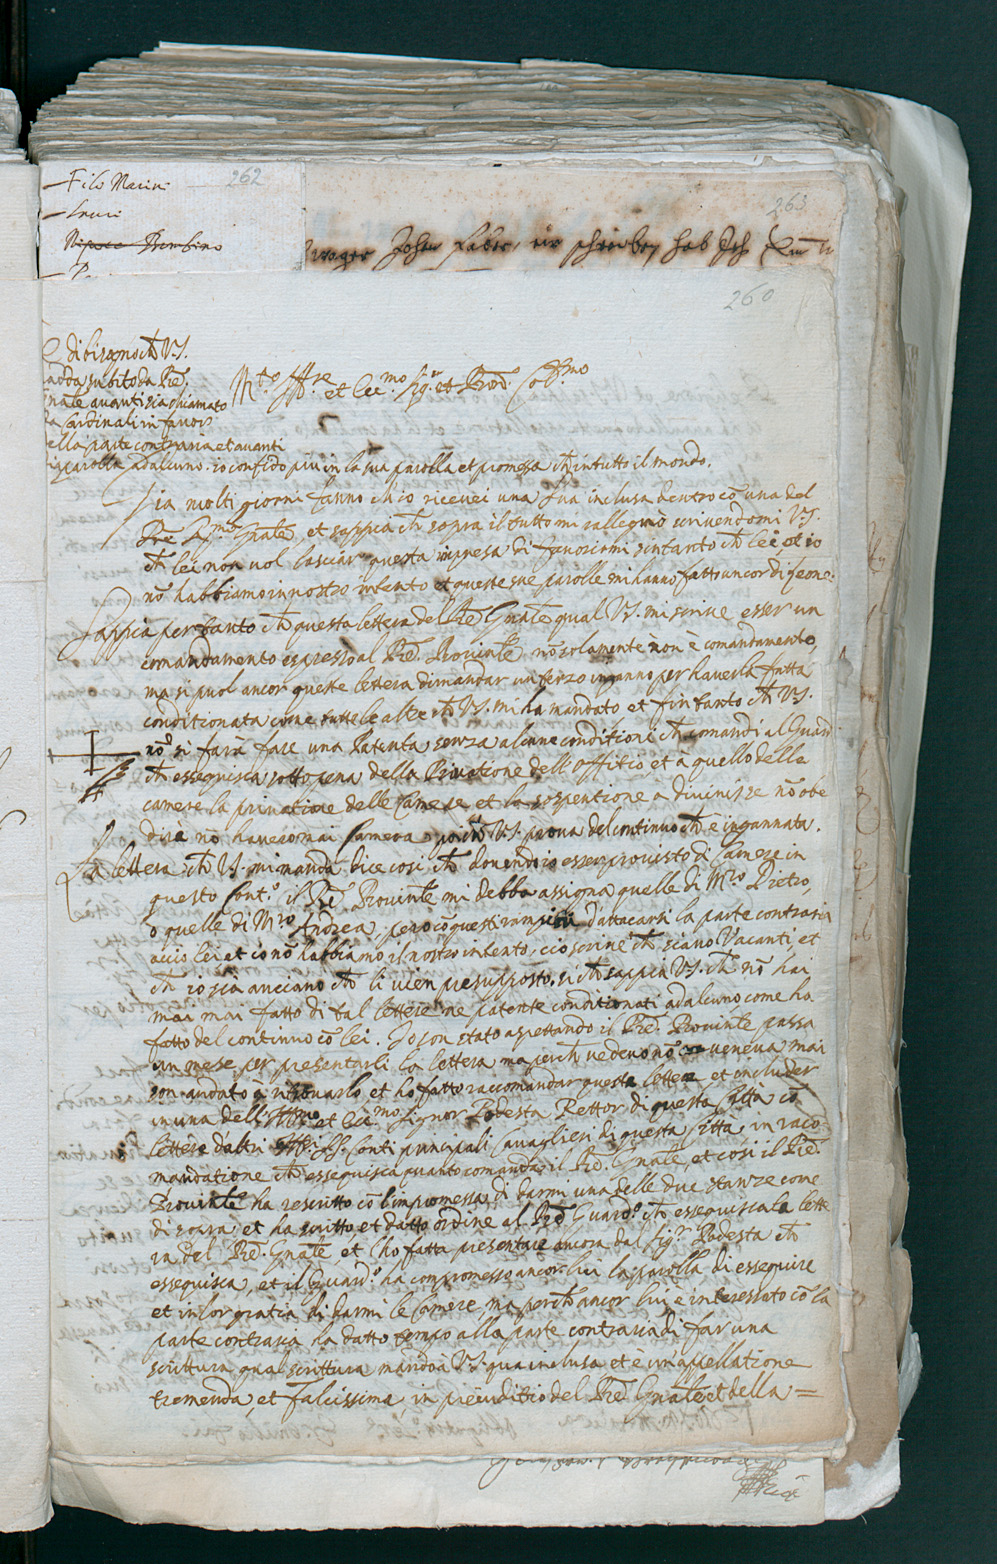 Filo Marin
262
Nipote Bembino
263
Joher Faber, schreiben hab Ich
260
è di bisogno ch̃ V.S.
subito da P̃re.
G̃nale avanti sia chiamato
Cardinali in favor
ella parte contraria et avanti
parolla ad alcuno. io confido più in la sua parolla et promessa ch̃ in tutto il mondo.
M.to Ill.re et Ecc.mo Sig.r et Prõn Col.mo
Sia molti giorni fanno ch'io ricevei una sua inclusa dentro cõ una del
P̃re R.mo G̃nale, et sappia ch̃ sopra il tutto mi rallegrò scrivendomi V.S.
ch̃ lei non vol lasciar questa impresa di favorirmi sintanto ch̃ lei, et io
nõ habbiamo in nostro intento et queste sue parolle mi hanno fatto un cor di leone.
Sappia per tanto ch̃ questa lettera del P̃re G̃nale qual V.S. mi scrive esser un
comandamento espresso al P̃re. Provinle nõ solamente non è comandamento,
ma si puol ancor queste lettera dimandar un terzo inganno per haverla fatta
conditionata come tutte le altre ch̃ V.S. mi ha mandato et fin tanto ch̃ V.S.
nõ si farà fare una Patenta senza alcune conditioni ch̃ comandi al Guard.
ch̃ essequisca sotto pena della Privatione dell'offitio, et à quello della
camere la privatione delle Camere et la sospentione a divinis, se nõ obe
dirà nõ haverò mai Camera V.S. prova del continuo ch̃ è ingannata.
La lettera ch̃ V.S. mi manda dice cosi, ch̃ dovendo io esser provisto di Camere in
questo Cont.o il P̃re Provinle mi debba assignar quelle di M.ro Pietro,
o quelle di M.ro Andrea, però cõ questi rampini d'attacarsi la parte contraria
acciò lei et io nõ habbiamo il nostro intento, ciò scrive ch̃ siano Vacanti, et
ch̃ io sia anciano ch̃ li vien presupposto. si ch̃ sappia V.S. ch̃ nõ hai
mai mai fatto di tal lettere ne patente conditionati ad alcuno come ha
fatto del continuo cõ lei. Io son stato aspettando il P̃re. Provinle passa
un mese per presentarli la lettera ma perch̃ vedevo nõ veneva mai
son andato à ritrovarlo et ho fatto raccomandar questa lettera et includer
in una dell' Ill.mo et Ecc.mo Signor Podesta Rettor di questa Città cõ
lettere d'altri Ill.ri SS. Conti principali Cavaglieri di questa Citta, in raco
mandatione ch̃ essequisca quanto comanda il P̃re. G̃nale, et cosi il P̃re.
Provinle ha rescritto cõ l'impromessa di darmi una delle due stanze come
di sopra et ha scritto, et datto ordine al P̃re Guard.o ch̃ essequisca la lette
ra del P̃re. G̃nale, et l'ho fatta presentare ancora dal Sig.r Podesta ch̃
essequisca, et il Guard.o ha compromesso ancor lui la parolla di essequire
et in lor gratia di darmi le Camere, ma perch̃ ancor lui è interessato cõ la
parte contraria ha datto tempo alla parte contraria di far una
scrittura qual scrittura mando à V.S. qua inclusa et è un appellatione
tremenda, et falcissima in preiuditio del P̃re. G̃nale et della =